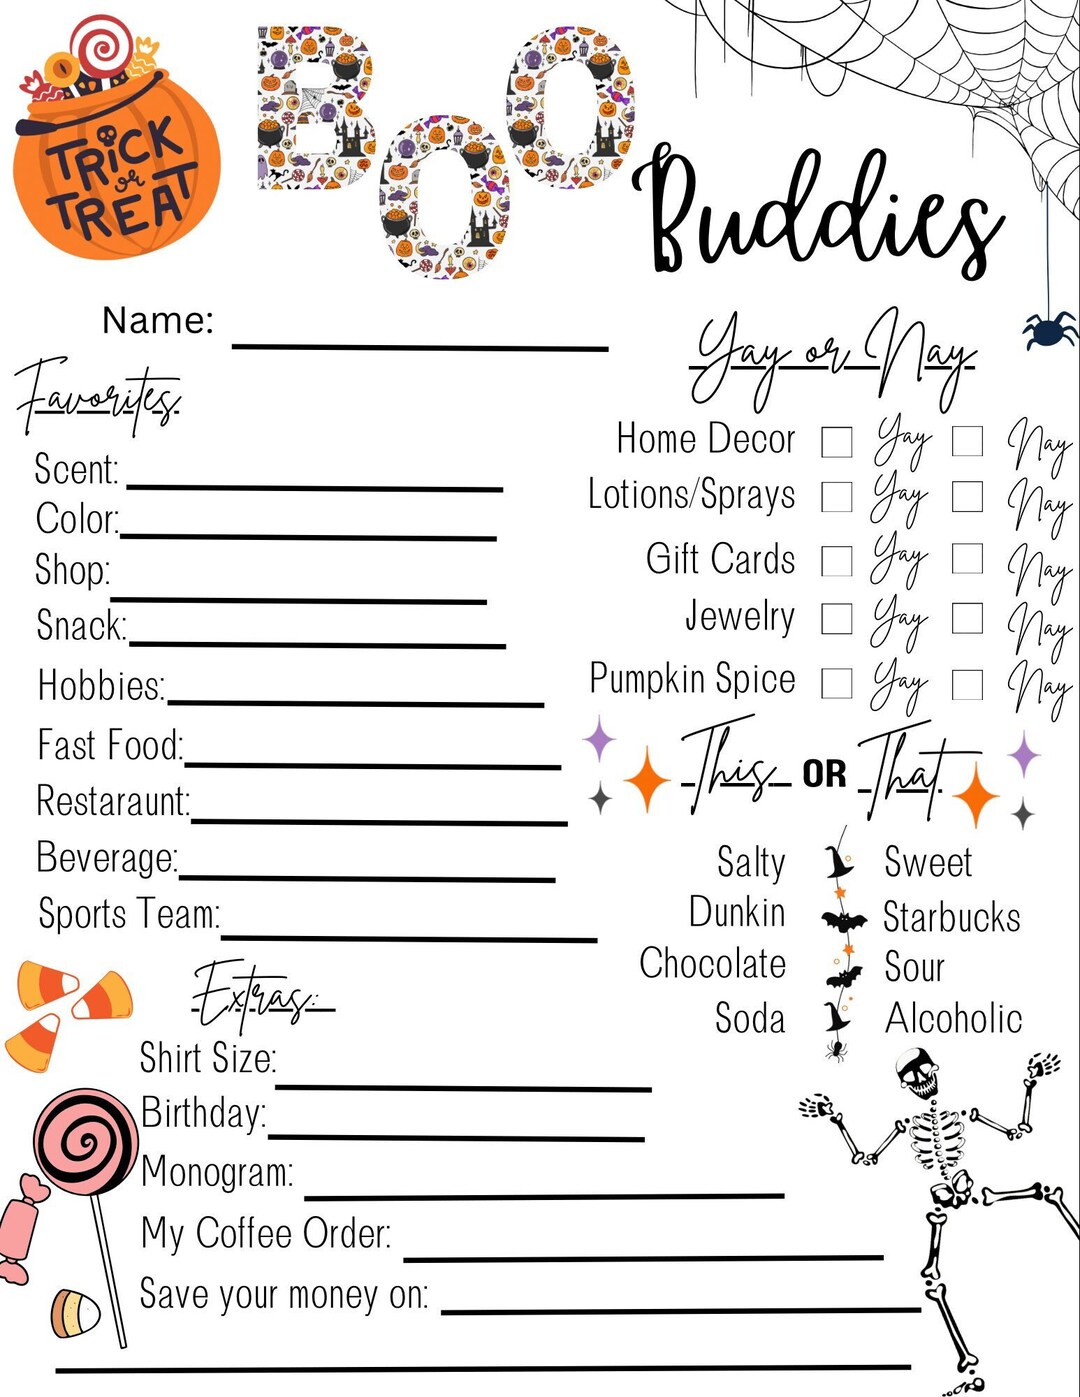 TRICK
or
TREAT
BOO
Buddies
Name:
Favorites
Scent:
Color:
Shop:
Snack:
Hobbies:
Fast Food:
Restaraunt:
Beverage:
Sports Team:
Extras:
Shirt Size:
Birthday:
Monogram:
My Coffee Order:
Save your money on:
Yay or Nay
Home Decor Yay Nay
Lotions/Sprays Yay Nay
Gift Cards Yay Nay
Jewelry Yay Nay
Pumpkin Spice Yay Nay
This OR That
Salty Sweet
Dunkin Starbucks
Chocolate Sour
Soda Alcoholic